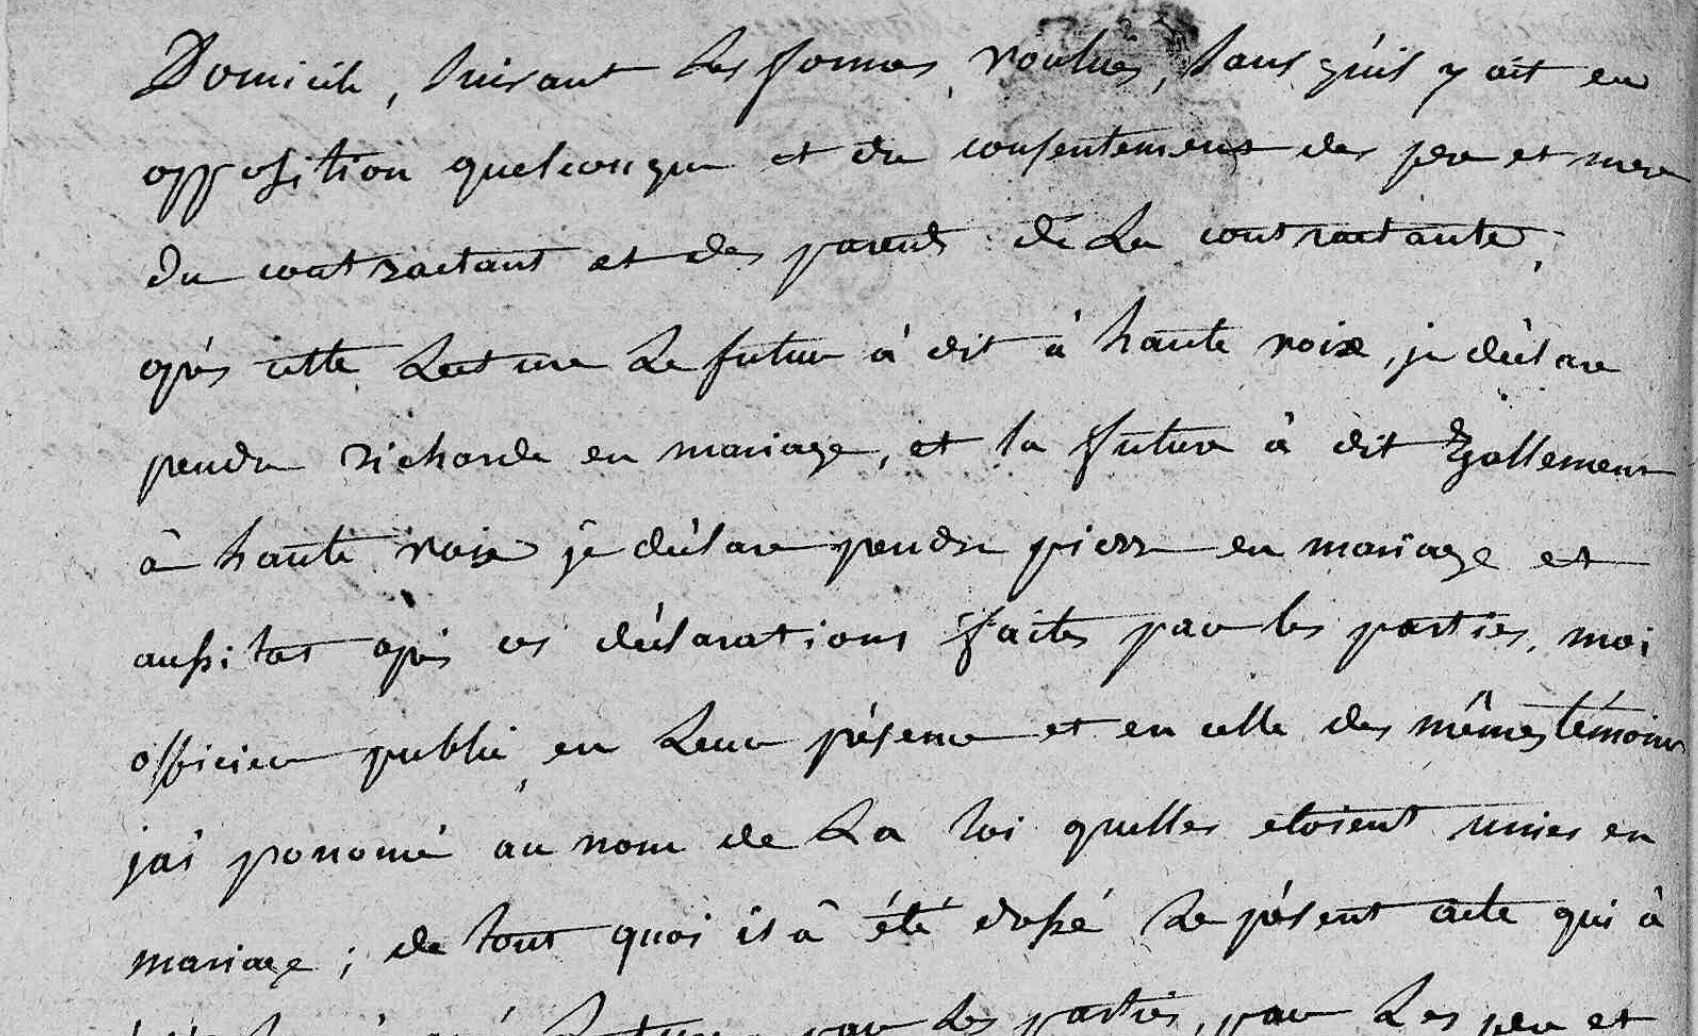 Domicile, suivant Les formes voulues, sans qu'il y ait eu
opposition quelconque et du consentement des pere et mere
du contractant et des parents de La contractante,
après cette Lecture Le futur à dit à haute voix, je déclare
prendre richarde en mariage, et la future à dit Egallement
à haute voix je déclare prendre pierre en mariage et
aussitot après ces déclarations faites par les parties, moi
officier public en Leur présence et en celle des mêmes témoins
jai prononcé au nom de La loi quelles etoient unies en
mariage ; de tout quoi il à été dressé Le présent acte qui à
Lecture par Les parties, par Les pere et